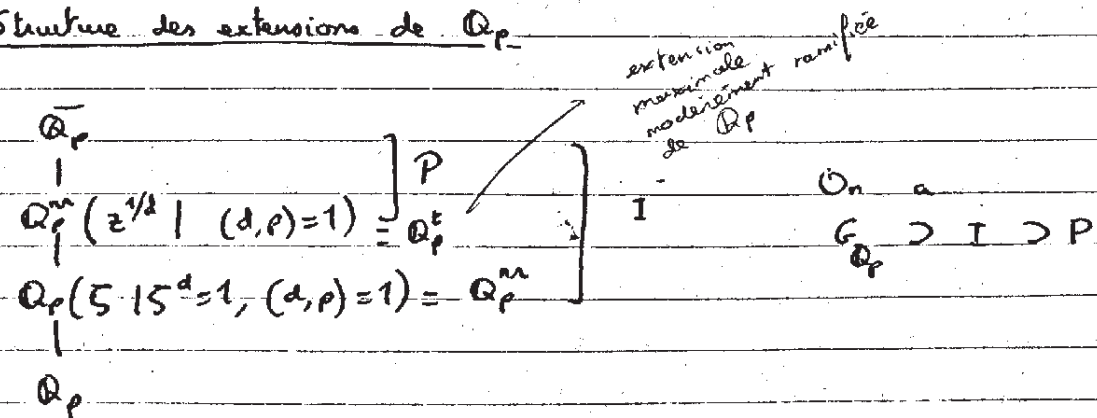 Structure des extensions de Q_p
extension
maximale
modérément ramifiée
de Q_p
\overline{Q_p}
P
Q_p^{nr} (z^{1/d} | (d,p)=1) = Q_p^t
I
On a
G_{Q_p} ⊃ I ⊃ P
Q_p(ζ | ζ^d=1, (d,p)=1) = Q_p^{nr}
Q_p